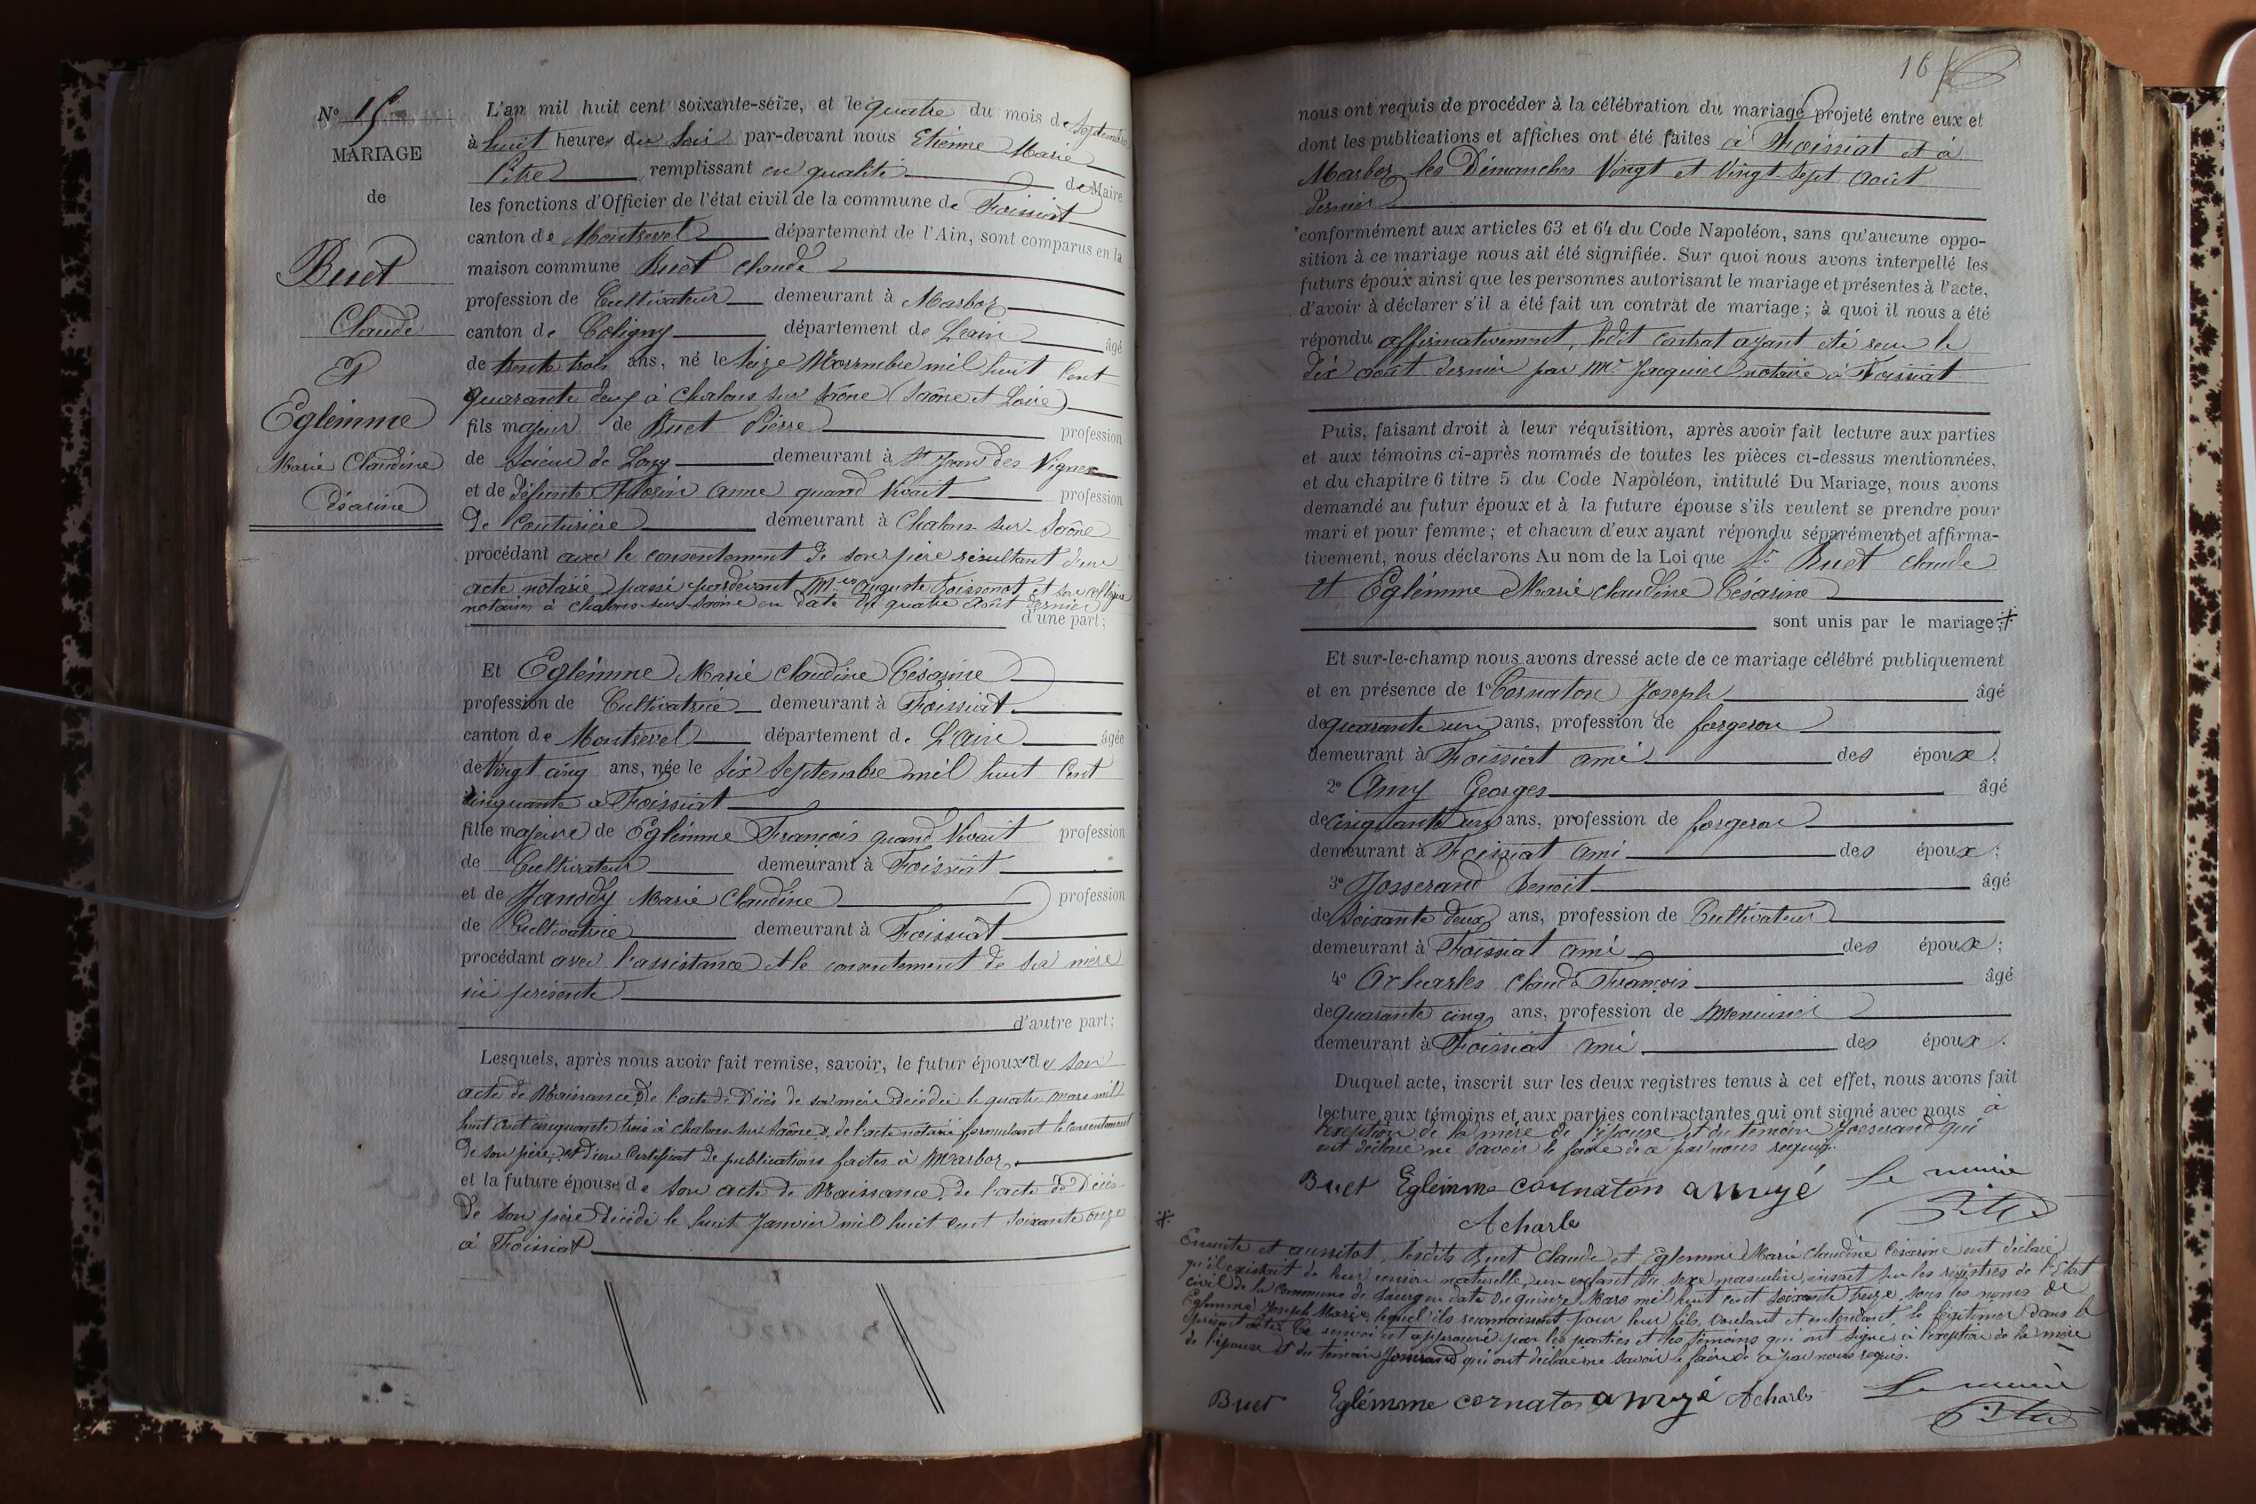 N° 15
MARIAGE
de
Buet
Claude
Et
Eglémme
Marie Claudine
Césarine
L'an mil huit cent soixante-seize, et le quatre du mois de Septembre
à huit heures du soir par-devant nous Etienne Marie
Pitre remplissant en qualité de Maire
les fonctions d'Officier de l'état civil de la commune de Foissiat
canton de Montrevel département de l'Ain, sont comparus en la
maison commune Buet Claude
profession de Cultivateur demeurant à Marboz
canton de Coligny département de L'ain âgé
de trente trois ans, né le seize Novembre mil huit Cent
quarante deux à Chalons sur Saône (Saône et Loire)
fils majeur de Buet Pierre profession
de Scieur de Long demeurant à St Jean des Vignes
et de défunte Anne quand Vivait profession
de Couturière demeurant à Chalons sur Saône
procédant avec le consentement de son père résultant d'un
acte notarié passé pardevant Mes Auguste Boissonot et son collègue
notaires à Chalons sur Saône en date du quatre Août dernier
d'une part;
Et Eglémme Marie Claudine Césarine
profession de Cultivatrice demeurant à Foissiat
canton de Montrevel département de L'Ain âgée
de Vingt cinq ans, née le Six Septembre mil huit Cent
cinquante à Foissiat
fille majeure de Eglémme François quand Vivait profession
de Cultivateur demeurant à Foissiat
et de Janody Marie Claudine profession
de Cultivatrice demeurant à Foissiat
procédant avec l'assistance et le consentement de sa mère
ici présente
d'autre part;
Lesquels, après nous avoir fait remise, savoir, le futur époux de son
acte de Naissance, de l'acte de Décès de sa mère décédée le quatre mars mil
huit cent cinquante trois à Chalons sur Saône, de l'acte notarié formulant le consentement
de son père, et d'un Certificat de publications faites à Marboz,
et la future épouse de son acte de Naissance, de l'acte de Décès
de son père décédé le huit Janvier mil huit cent soixante onze
à Foissiat
16
nous ont requis de procéder à la célébration du mariage projeté entre eux et
dont les publications et affiches ont été faites à Foissiat et à
Marboz les Dimanches Vingt et Vingt sept Août
dernier
conformément aux articles 63 et 64 du Code Napoléon, sans qu'aucune oppo-
sition à ce mariage nous ait été signifiée. Sur quoi nous avons interpellé les
futurs époux ainsi que les personnes autorisant le mariage et présentes à l'acte,
d'avoir à déclarer s'il a été fait un contrat de mariage; à quoi il nous a été
répondu affirmativement, ledit contrat ayant été reçu le
dix août dernier par Me Jacquier notaire à Foissiat
Puis, faisant droit à leur réquisition, après avoir fait lecture aux parties
et aux témoins ci-après nommés de toutes les pièces ci-dessus mentionnées,
et du chapitre 6 titre 5 du Code Napoléon, intitulé Du Mariage, nous avons
demandé au futur époux et à la future épouse s'ils veulent se prendre pour
mari et pour femme; et chacun d'eux ayant répondu séparément et affirma-
tivement, nous déclarons Au nom de la Loi que Sr Buet Claude
et Eglémme Marie Claudine Césarine
sont unis par le mariage;
Et sur-le-champ nous avons dressé acte de ce mariage célébré publiquement
et en présence de 1° Cornaton Joseph âgé
de quarante un ans, profession de forgeron
demeurant à Foissiat ami des époux;
2° Amy Georges âgé
de cinquante un ans, profession de forgeron
demeurant à Foissiat ami des époux;
3° Josserand Benoit âgé
de soixante deux ans, profession de Cultivateur
demeurant à Foissiat ami des époux;
4° Acharles Claude François âgé
de quarante cinq ans, profession de Menuisier
demeurant à Foissiat ami des époux.
Duquel acte, inscrit sur les deux registres tenus à cet effet, nous avons fait
lecture aux témoins et aux parties contractantes qui ont signé avec nous à
l'exeption de la mère de l'épouse et du témoin Josserand qui
ont déclaré ne savoir le faire de ce par nous requis.
Buet Eglémme cornaton Le maire
Acharle Pitre
Ensuite et aussitot, lesdits Buet Claude et Eglemme Marie Claudine Césarine ont déclaré
qu'il existait de leur union naturelle, un enfant du sexe masculin, inscrit sur les registres de l'Etat
civil de la Commune de en date du quinze Mars mil huit cent soixante treize, sous les noms de
Eglemme Joseph Marie, lequel ils reconnaissent pour leur fils, voulant et entendant le légitimer dans le
présent acte. Ce renvoi est approuvé par les parties et les témoins qui ont signé, à l'exeption de la mère
de l'épouse et du temoin Josserand qui ont déclaré ne savoir le faire de ce par nous requis.
Buet Eglémme cornaton Acharle Le maire
Pitre